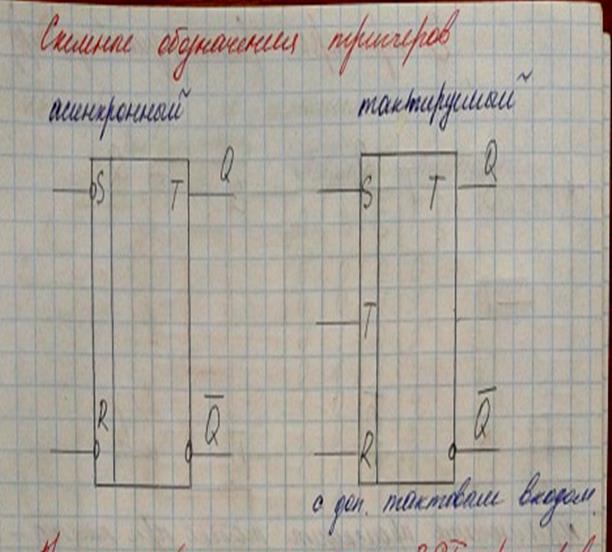 Схемные обозначения тригеров
асинхронный тактируемый
Q Q
S T S T
T
R Q̅ R Q̅
с доп. тактовым входом.